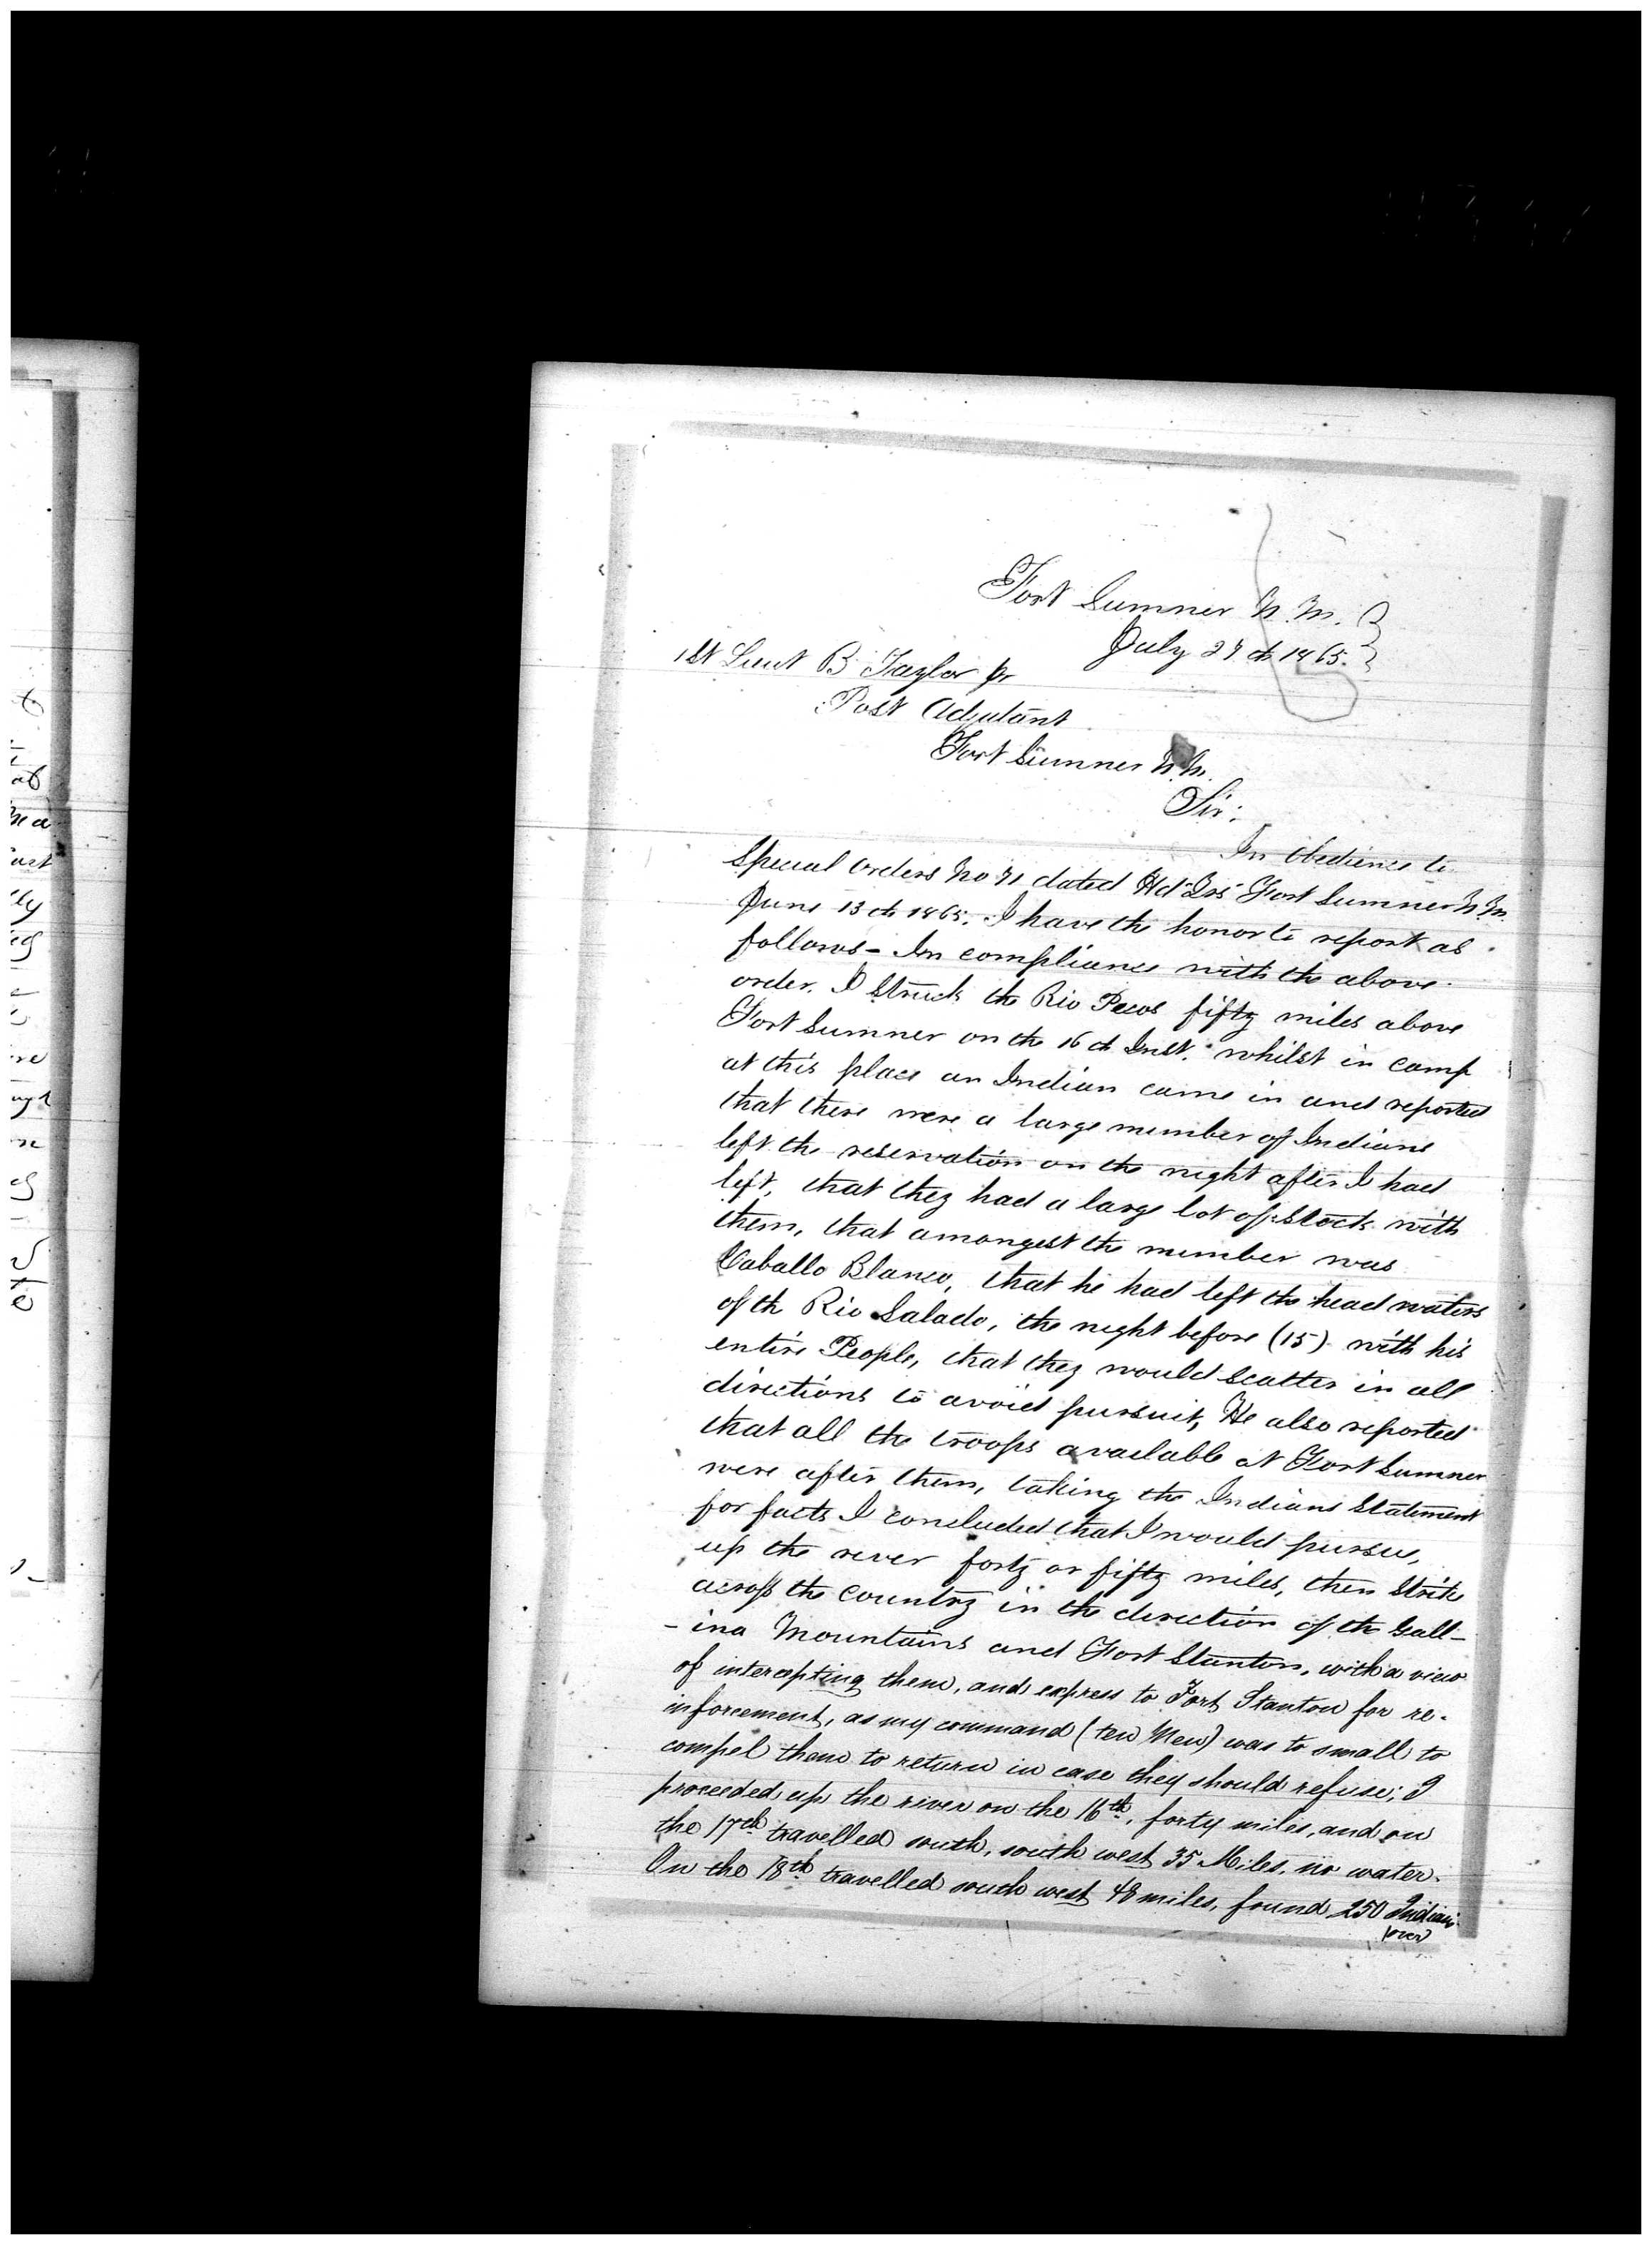 Fort Sumner N. M.
July 27th 1865.
1st Lieut B. Taylor Jr
Post Adjutant
Fort Sumner N.M.
Sir:
In Obedience to
Special Orders No 71 dated Hd Qrs Fort Sumner N.M.
June 13th 1865. I have the honor to report as
follows - In compliance with the above
order. I Struck the Rio Pecos fifty miles above
Fort Sumner on the 16th Inst. whilst in camp
at this place an Indian came in and reported
that there were a large number of Indians
left the reservation on the night after I had
left, that they had a large lot of Stock with
them, that amongest the number was
Caballo Blanco, that he had left the head waters
of the Rio Salado, the night before (15) with his
entire People, that they would scatter in all
directions to avoid pursuit, He also reported
that all the troops available at Fort Sumner
were after them, taking the Indians Statement
for facts I concluded that I would pursue,
up the river forty or fifty miles, then Strike
across the Country in the direction of the Gall-
-ina Mountains and Fort Stanton, with a view
of intercepting them, and express to Fort Stanton for re-
inforcement, as my command (ten Men) was to small to
compel them to return in case they should refuse; I
proceeded up the river on the 16th, forty miles, and on
the 17th travelled south, south west 35 Miles, no water.
On the 18th travelled south west 48 miles, found 250 Indians
(over)